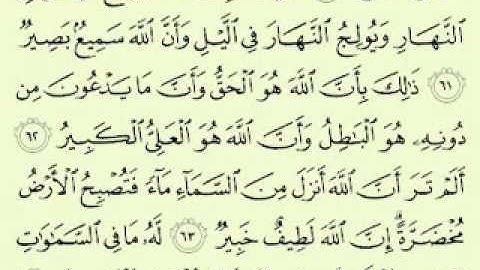 ٱلنَّهَارِ وَيُولِجُ ٱلنَّهَارَ فِي ٱلَّيۡلِ وَأَنَّ ٱللَّهَ سَمِيعُۢ بَصِيرٞ
٦١ ذَٰلِكَ بِأَنَّ ٱللَّهَ هُوَ ٱلۡحَقُّ وَأَنَّ مَا يَدۡعُونَ مِن
دُونِهِۦ هُوَ ٱلۡبَٰطِلُ وَأَنَّ ٱللَّهَ هُوَ ٱلۡعَلِيُّ ٱلۡكَبِيرُ ٦٢
أَلَمۡ تَرَ أَنَّ ٱللَّهَ أَنزَلَ مِنَ ٱلسَّمَآءِ مَآءٗ فَتُصۡبِحُ ٱلۡأَرۡضُ
مُخۡضَرَّةًۚ إِنَّ ٱللَّهَ لَطِيفٌ خَبِيرٞ ٦٣ لَّهُۥ مَا فِي ٱلسَّمَٰوَٰتِ